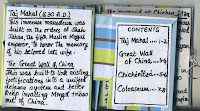 Taj Mahal (1630 A.D.)
This immense mausoleum was
built on the orders of Shah
Jahan, the fifth Muslim Mughal
emperor, to honor the memory
of his beloved late wife.
The Great Wall of China
This was built to link existing
fortifications into a unified
defence system and better
keep invading Mongol tribes
out of China.
CONTENTS
Taj Mahal 1-2
Great Wall
of China 3-4
Chichenitza 5-6
Colosseum 7-8